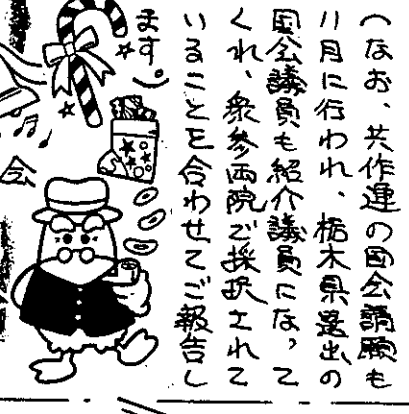 (なお、共作連の国会請願も
11月に行われ、栃木県選出の
国会議員も紹介議員になって
くれ、衆参両院で採択されて
いることを合わせてご報告し
ます。)
会